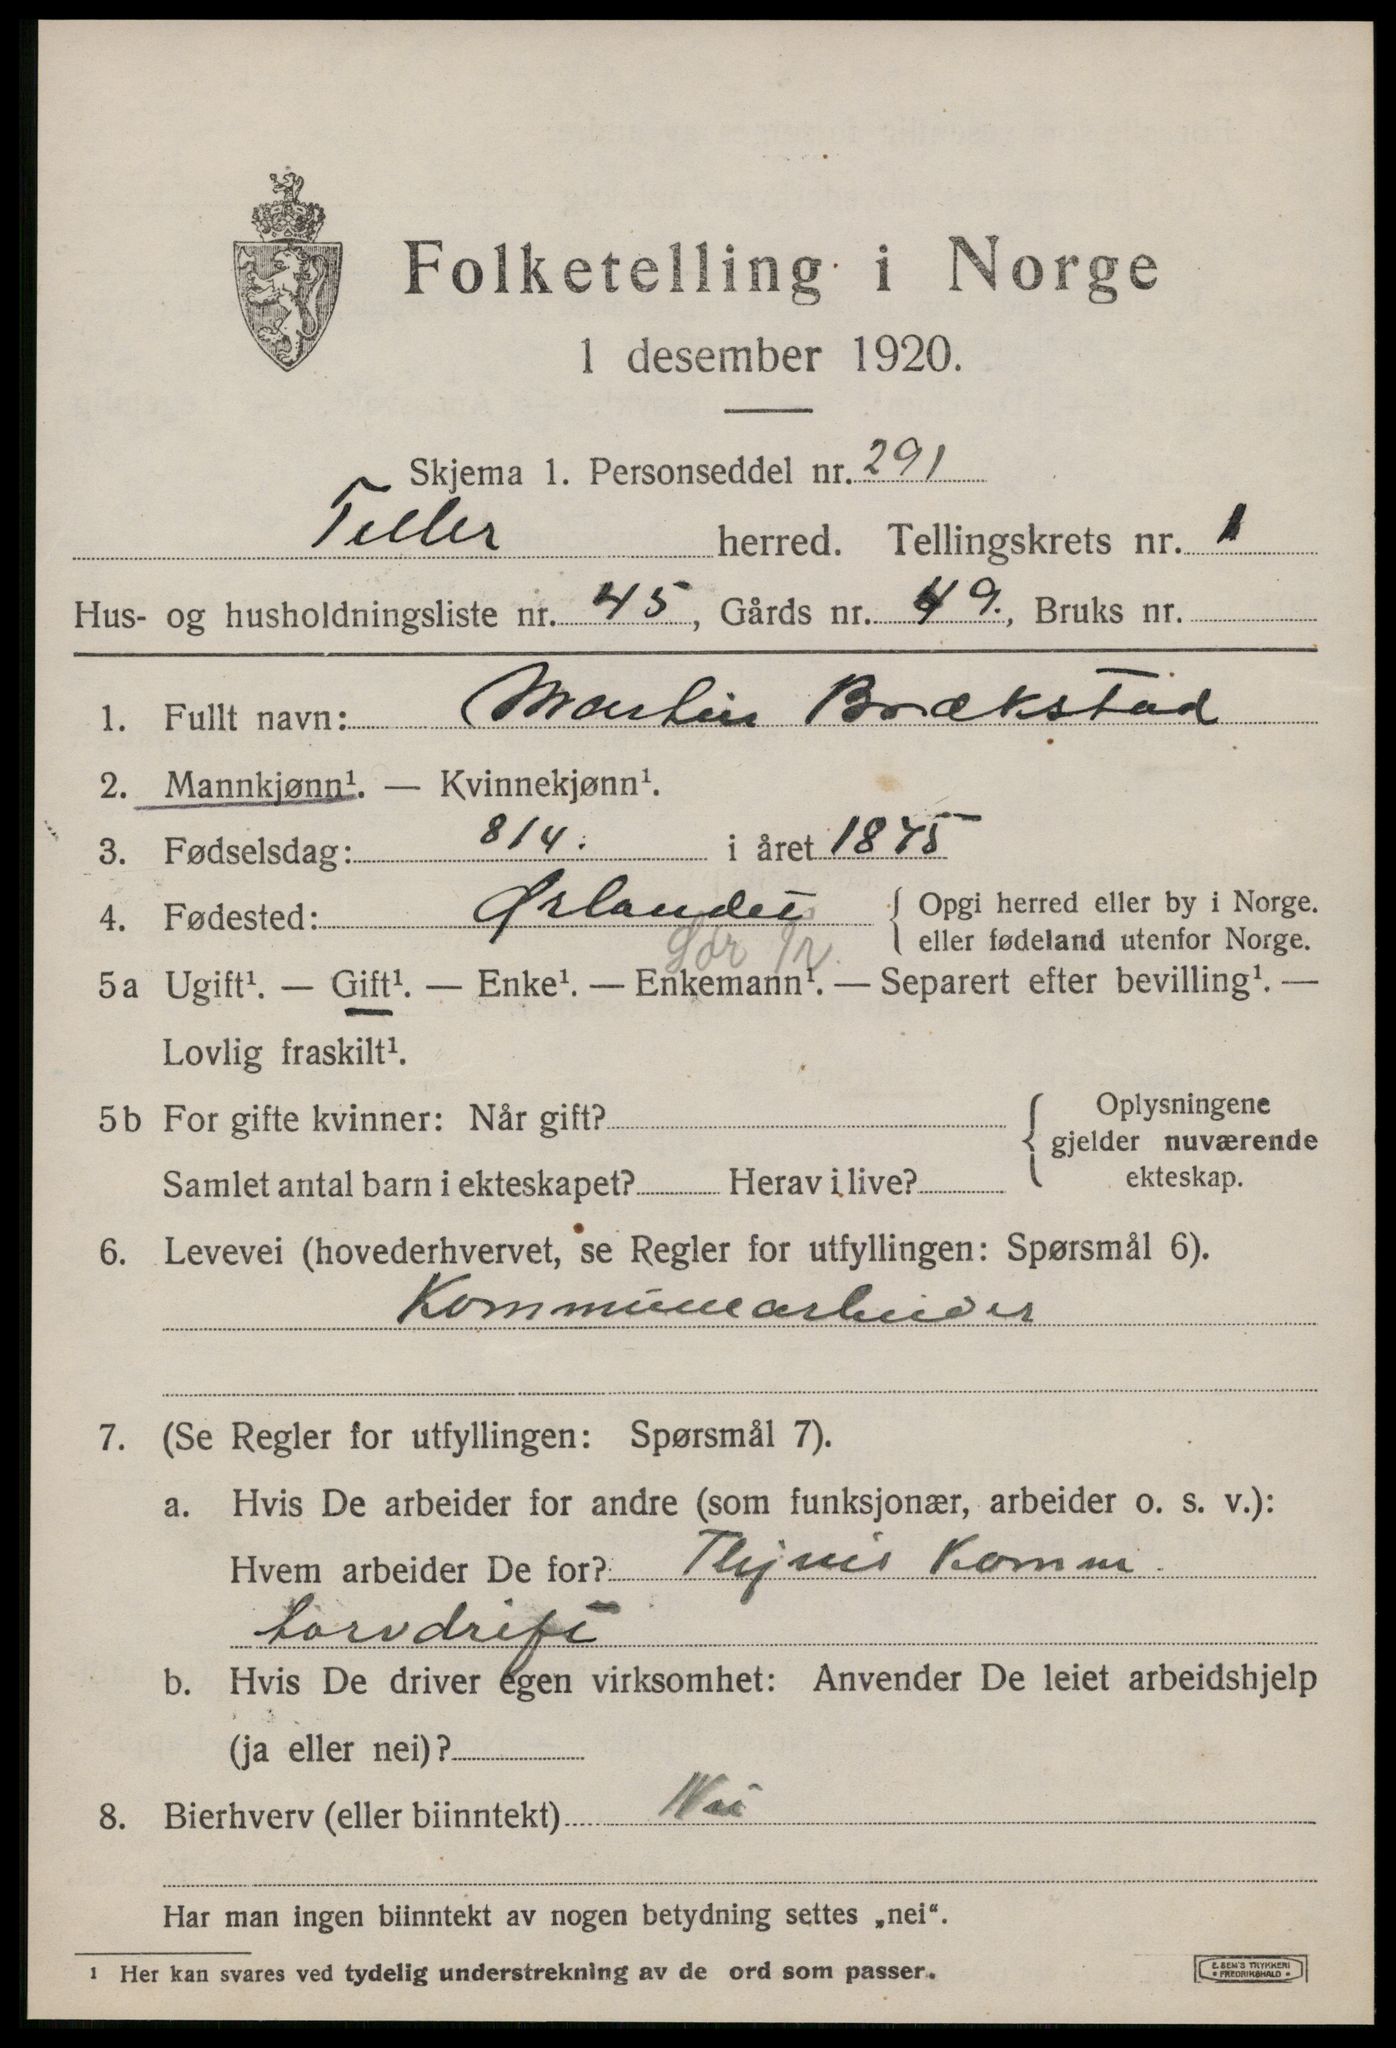 Folketelling i Norge
1 desember 1920.
Skjema 1. Personseddel nr. 291
Tiller herred. Tellingskrets nr. 1
Hus- og husholdningsliste nr. 45, Gårds nr. 49., Bruks nr.
1. Fullt navn: Martin Brækstad
2. Mannkjønn¹. — Kvinnekjønn¹.
3. Fødselsdag: 8/4. i året 1875
4. Fødested: Ørlandet { Opgi herred eller by i Norge.
eller fødeland utenfor Norge.
Sør Tr.
5a Ugift¹. — Gift¹. — Enke¹. — Enkemann¹. — Separert efter bevilling¹. —
Lovlig fraskilt¹.
5b For gifte kvinner: Når gift? { Oplysningene
gjelder nuværende
Samlet antal barn i ekteskapet? Herav i live? ekteskap.
6. Levevei (hovederhvervet, se Regler for utfyllingen: Spørsmål 6).
Kommunearbeider
7. (Se Regler for utfyllingen: Spørsmål 7).
a. Hvis De arbeider for andre (som funksjonær, arbeider o. s. v.):
Hvem arbeider De for? Thjms Komm.
torvdrift
b. Hvis De driver egen virksomhet: Anvender De leiet arbeidshjelp
(ja eller nei)?
8. Bierhverv (eller biinntekt) Nei
Har man ingen biinntekt av nogen betydning settes „nei“.
¹ Her kan svares ved tydelig understrekning av de ord som passer.
E. SEM'S TRYKKERI
• FREDRIKSHALD •